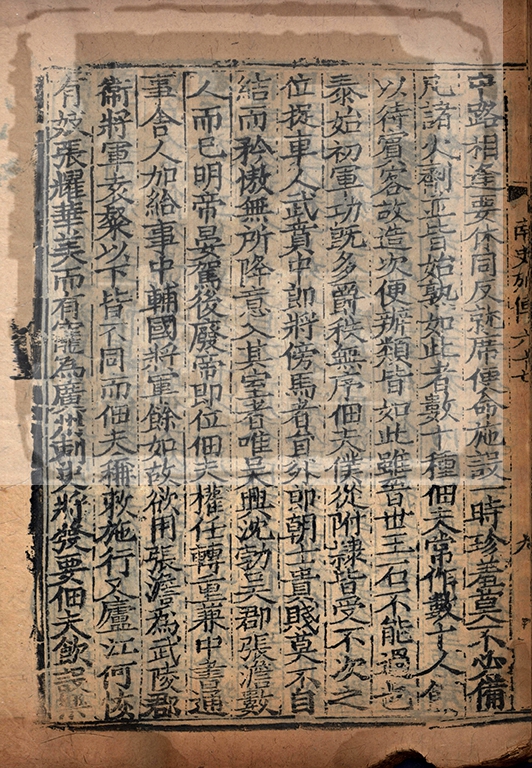 中路相逢要休同反就席便命施設一時珍羞莫不必備
凡諸火劑並皆始熟如此者數十種佃夫常作數十人
以待賔客故造次便辦類皆如此雖晉世王石不能過也
泰始初軍功旣多爵秩無序佃夫僕從附隷皆受不次之
位捉車人武賁中郎將傍馬者員外郎朝士貴賤莫不自
結而矜慠無所降意入其室者唯吴興沈勃吴郡張澹數
人而巳明帝晏駕後廢帝即位佃夫權任轉重兼中書通
事舎人加給事中輔國將軍餘如故欲用張澹為武陵郡
衞將軍袁粲以下皆不同而佃夫稱敕施行又廬江何恢
有妓張耀華美而有寵為廣州刺史將發要佃夫飲設樂
南史列傳六十七
九